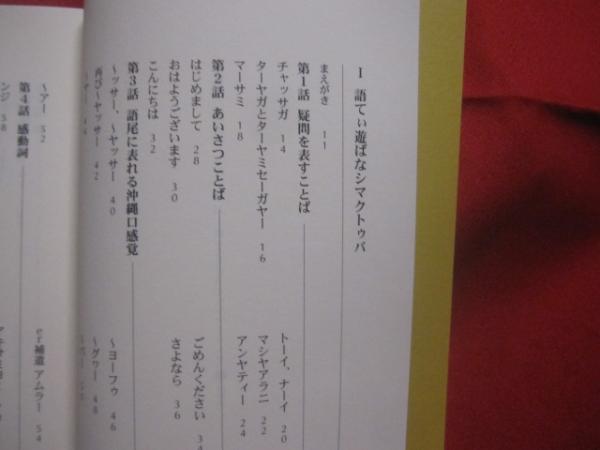 I 語てぃ遊ばなシマクトゥバ
まえがき 11
第1話 疑問を表すことば
チャッサガ 14
ターヤガとターヤミセーガヤー 16
マーサミ 18
トーイ、ナーイ 20
マシヤアラニ 22
アンヤティー 24
第2話 あいさつことば
はじめまして 28
おはようございます 30
こんにちは 32
ごめんください 34
さよなら 36
第3話 語尾に表れる沖縄口感覚
〜ッサー、〜ヤッサー 40
再び〜ヤッサー 42
〜ヨーフゥ 46
〜グヮー 48
〜アー 52
er補遺 アムラー 54
第4話 感動詞
ンジ 58